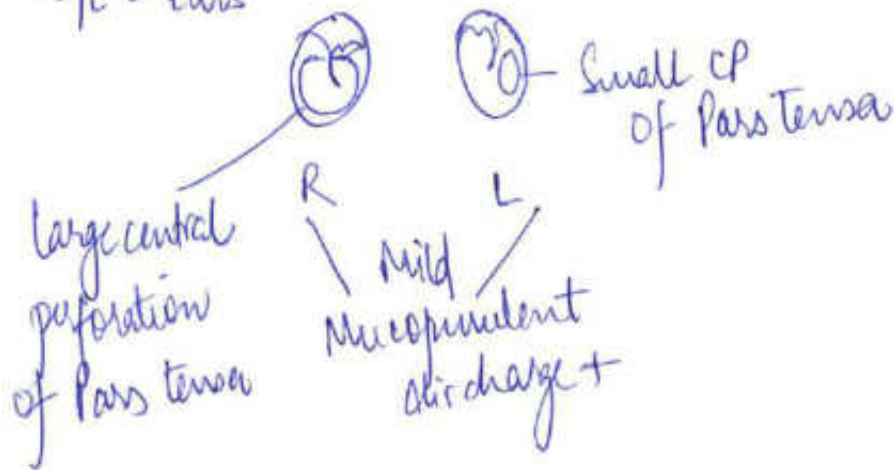 Ears
Small CP
of Pars Tensa
R L
Large central
perforation
of Pars tensa
Mild
Mucopurulent
discharge +